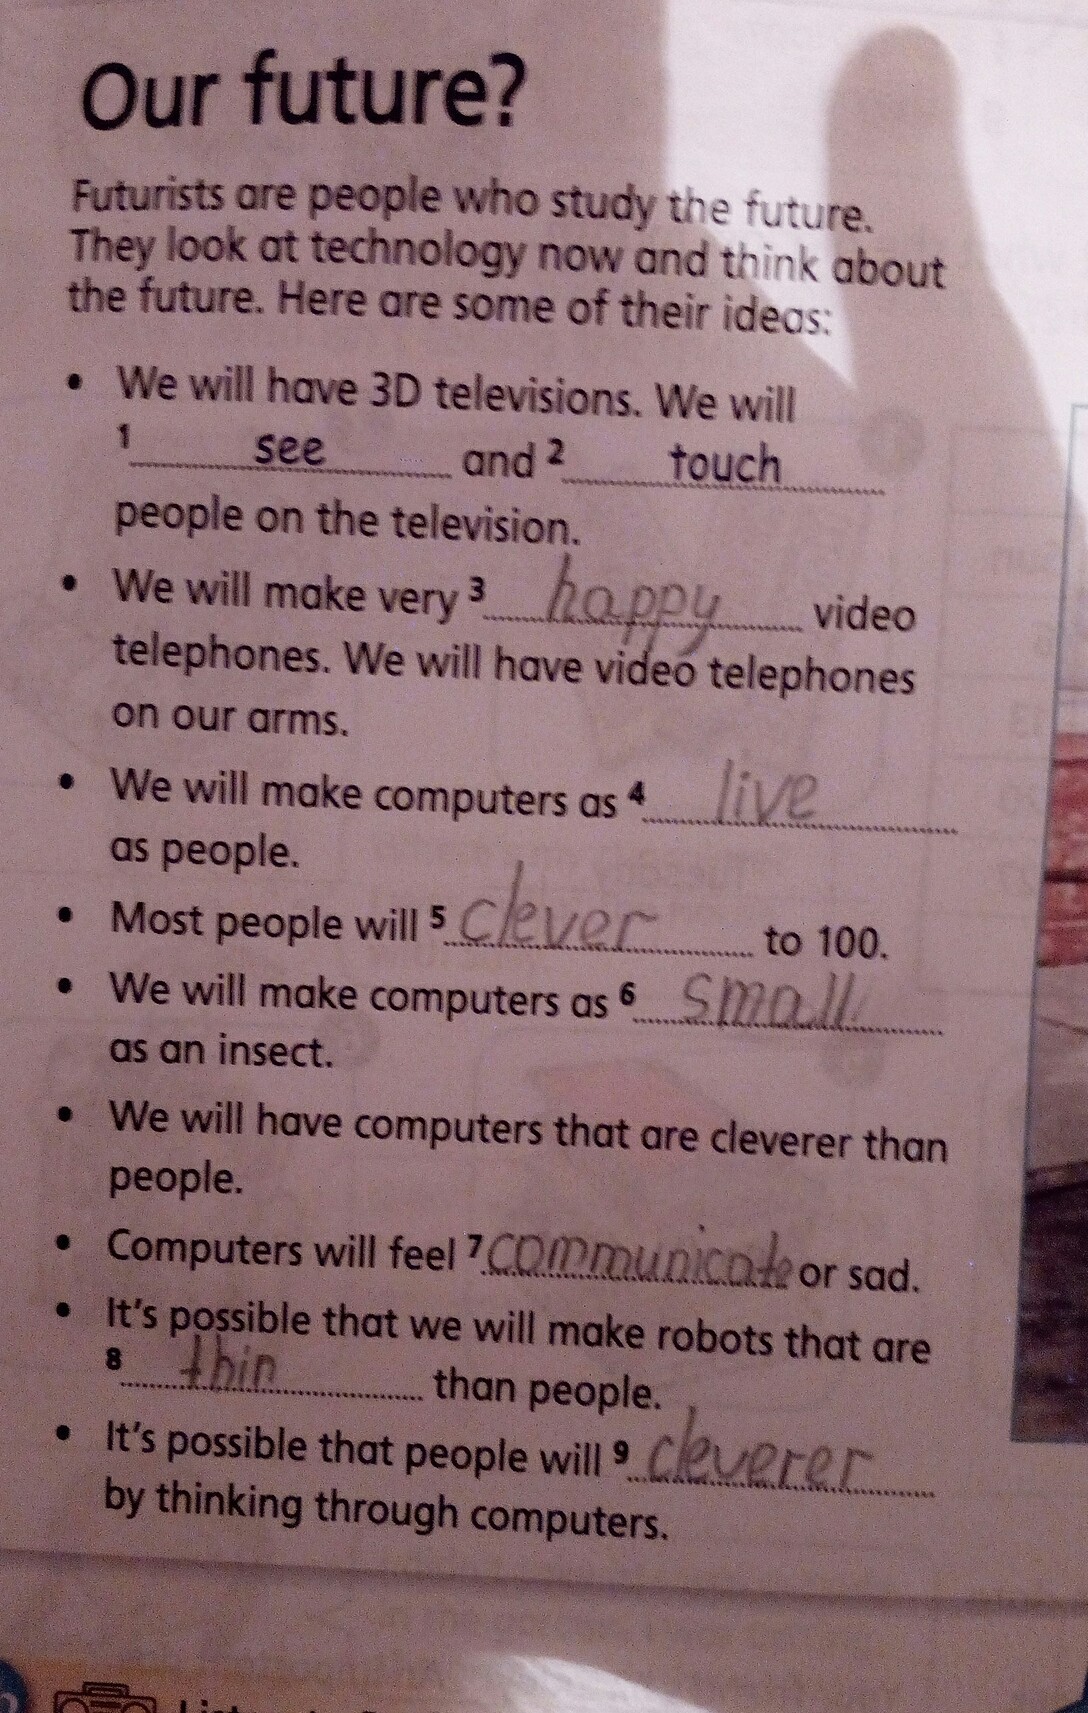 Our future?
Futurists are people who study the future.
They look at technology now and think about
the future. Here are some of their ideas:
• We will have 3D televisions. We will
1 see and 2 touch
people on the television.
• We will make very 3 happy video
telephones. We will have video telephones
on our arms.
• We will make computers as 4 live
as people.
• Most people will 5 clever to 100.
• We will make computers as 6 small
as an insect.
• We will have computers that are cleverer than
people.
• Computers will feel 7 communicate or sad.
• It's possible that we will make robots that are
8 thin than people.
• It's possible that people will 9 cleverer
by thinking through computers.